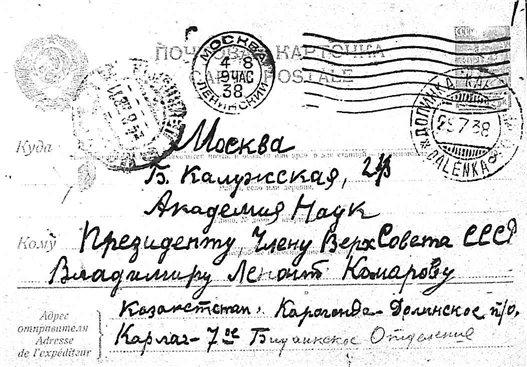 ПОЧТОВАЯ КАРТОЧКА
CARTE POSTALE
МОСКВА
4-8
9 ЧАС
38
ЛЕНИНСКИЙ
ДОЛИНКА КАЗ
25 7 38
DALENKA
Куда
Москва
Б. Калужская,
Академия Наук
Кому Президенту, Члену Верх Совета СССР
Владимиру Комарову
Адрес
отправителя
Adresse
de l'expéditeur
Казахстан. Караганда - Долинское п/о.
Карлаг - 7ое Отделение